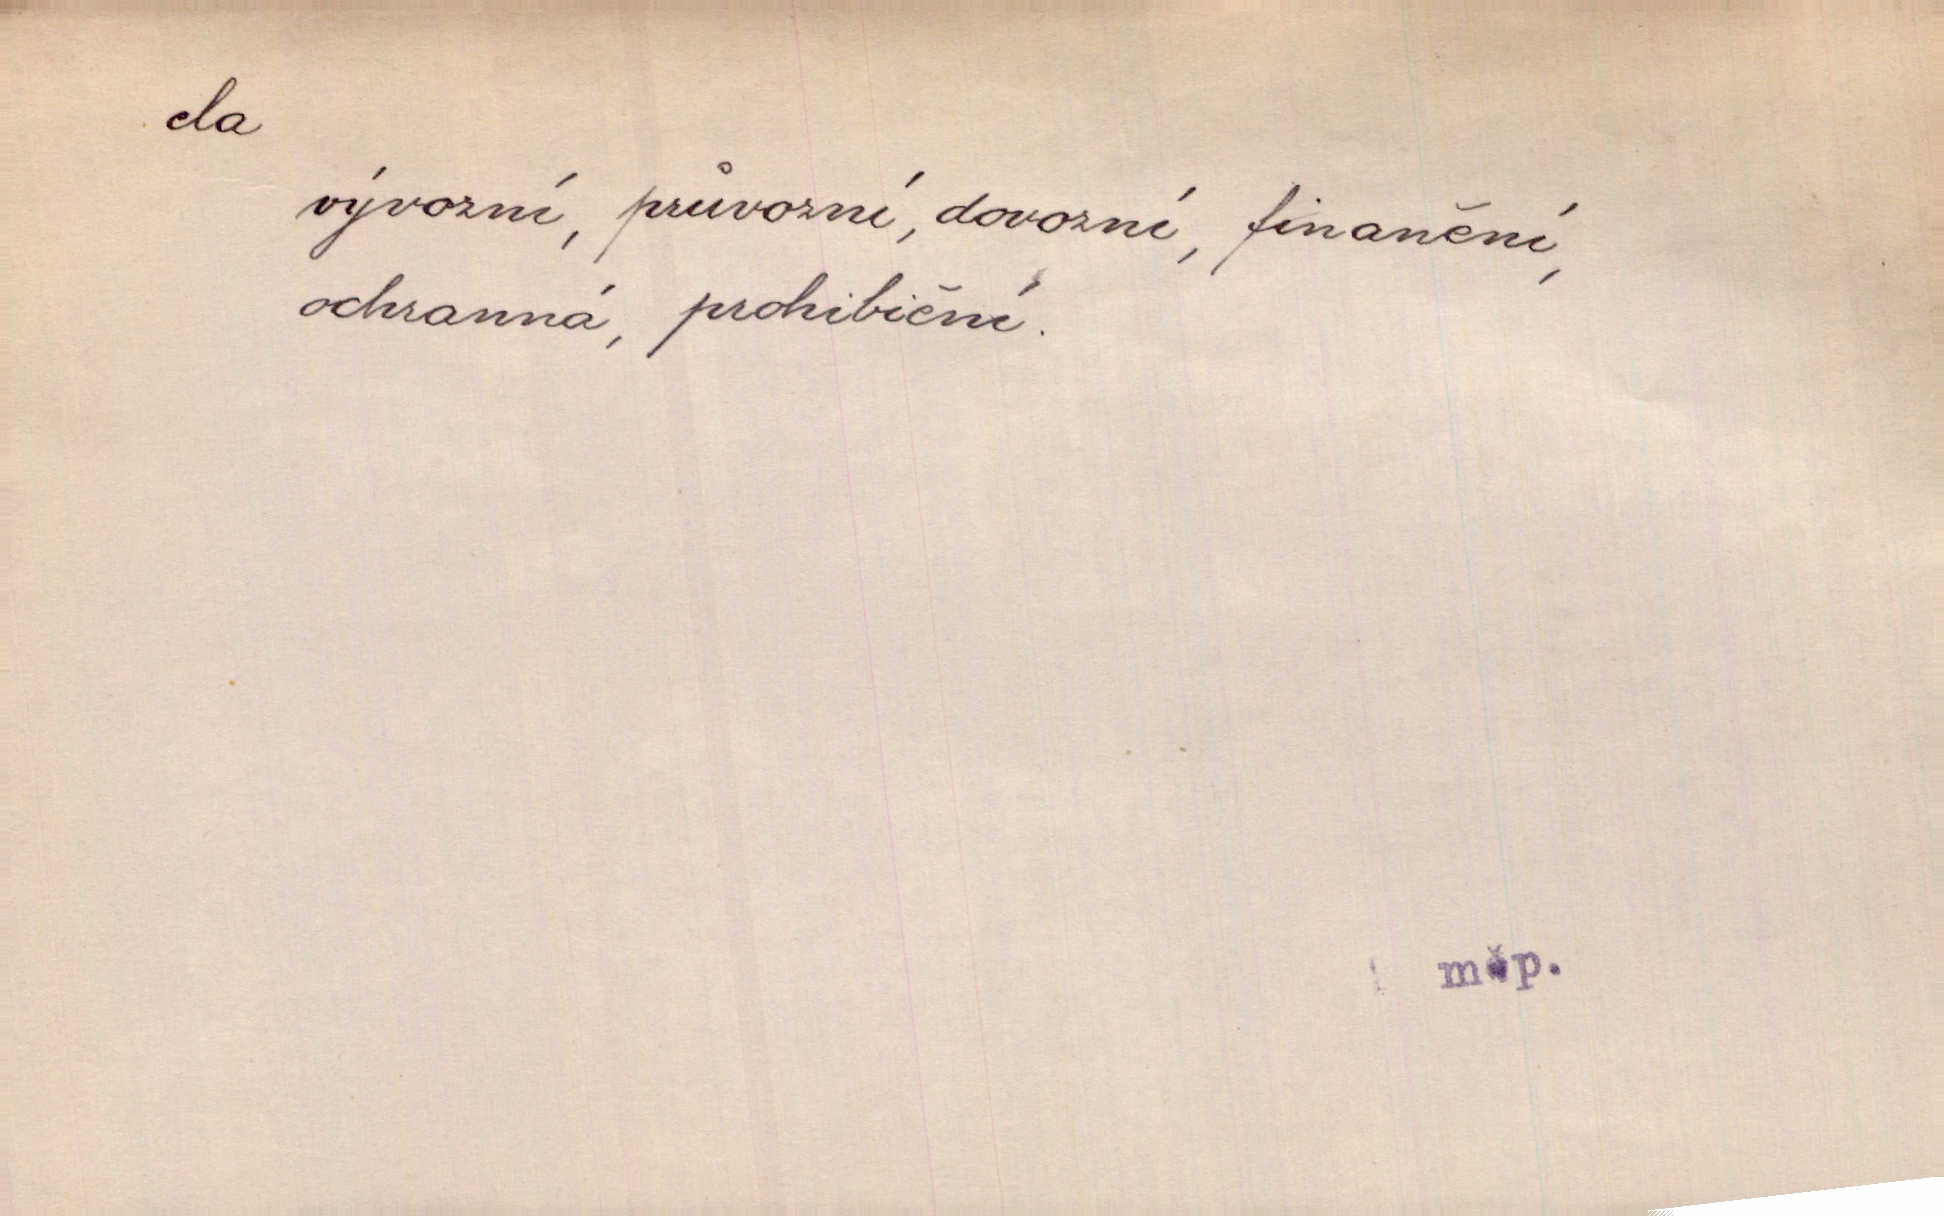 cla
vývozní, průvozní, dovozní, finanční,
ochranná, prohibiční.
měp.